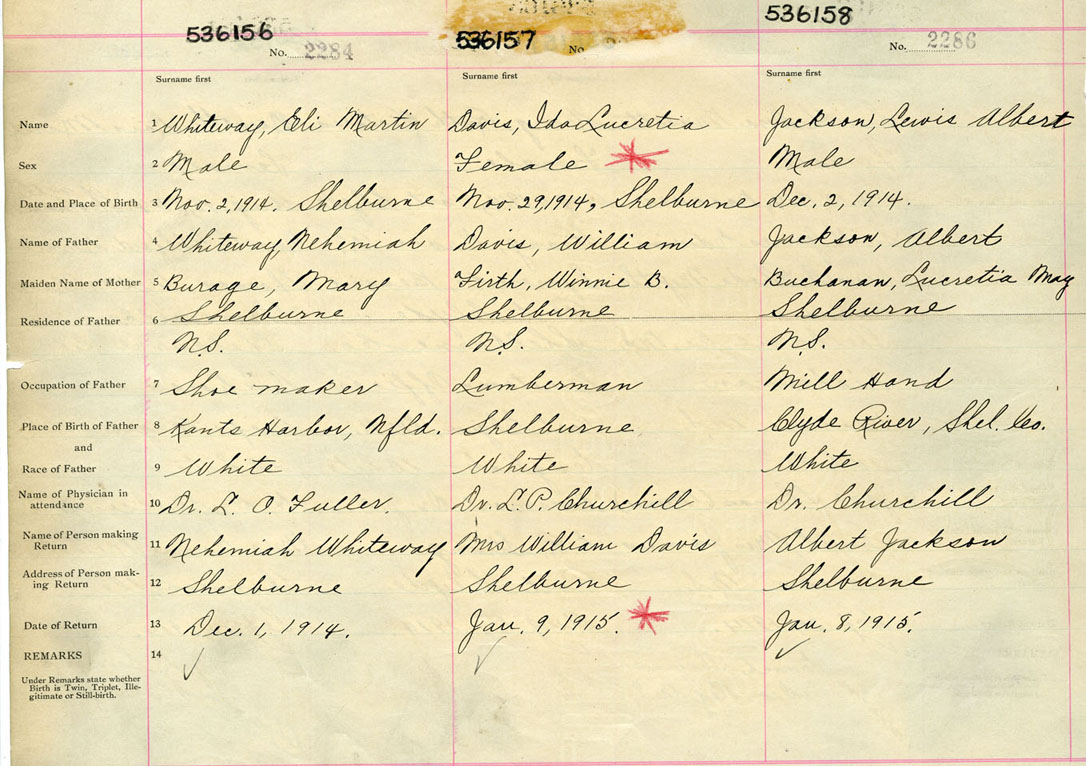 536156 536157 536158
No. 2284 No. No. 2286
Surname first Surname first Surname first
Name 1 Whiteway, Eli Martin Davis, Ida Lucretia Jackson, Lewis Albert
Sex 2 Male Female Male
Date and Place of Birth 3 Nov. 2, 1914. Shelburne Nov. 29, 1914, Shelburne Dec. 2, 1914.
Name of Father 4 Whiteway, Nehemiah Davis, William Jackson, Albert
Maiden Name of Mother 5 Burage, Mary Firth, Winnie B. Buchanan, Lucretia May
Residence of Father 6 Shelburne Shelburne Shelburne
N.S. N.S. N.S.
Occupation of Father 7 Shoe maker Lumberman Mill Hand
Place of Birth of Father 8 Kants Harbor, Nfld. Shelburne Clyde River, Shel. Co.
and
Race of Father 9 White White White
Name of Physician in
attendance 10 Dr. L. O. Fuller. Dr. L. P. Churchill Dr. Churchill
Name of Person making
Return 11 Nehemiah Whiteway Mrs William Davis Albert Jackson
Address of Person mak-
ing Return 12 Shelburne Shelburne Shelburne
Date of Return 13 Dec. 1, 1914. Jan. 9, 1915. Jan. 8, 1915.
REMARKS 14
Under Remarks state whether
Birth is Twin, Triplet, Ille-
gitimate or Still-birth.